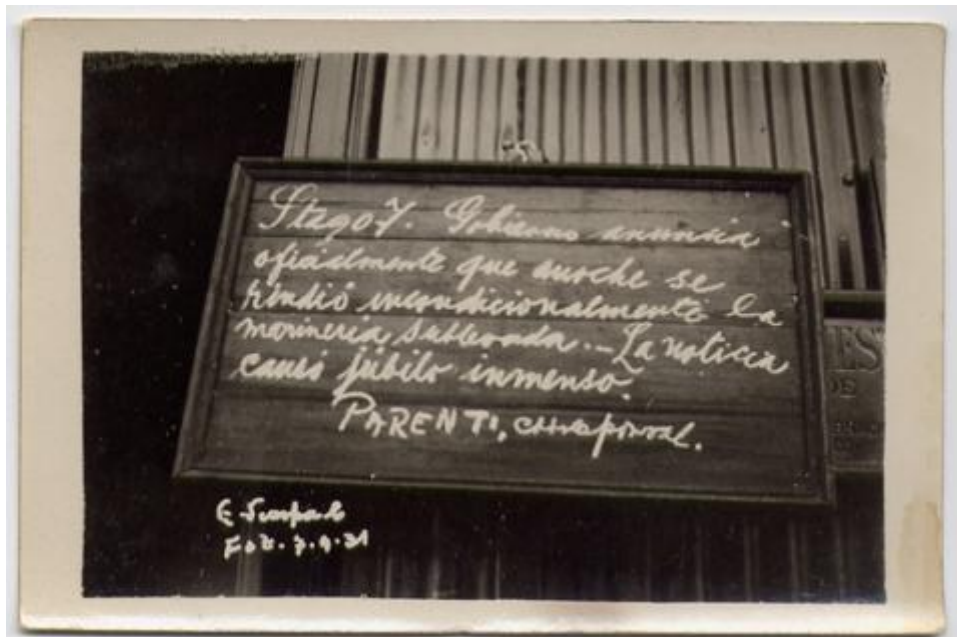 Stago 7. Gobierno anuncia
oficialmente que anoche se
rindió incondicionalmente la
marinería sublevada. — La noticia
causó júbilo inmenso.
PARENTI, corresponsal.
ES
DE
E. Scarpa C
Fot. 7.9.31